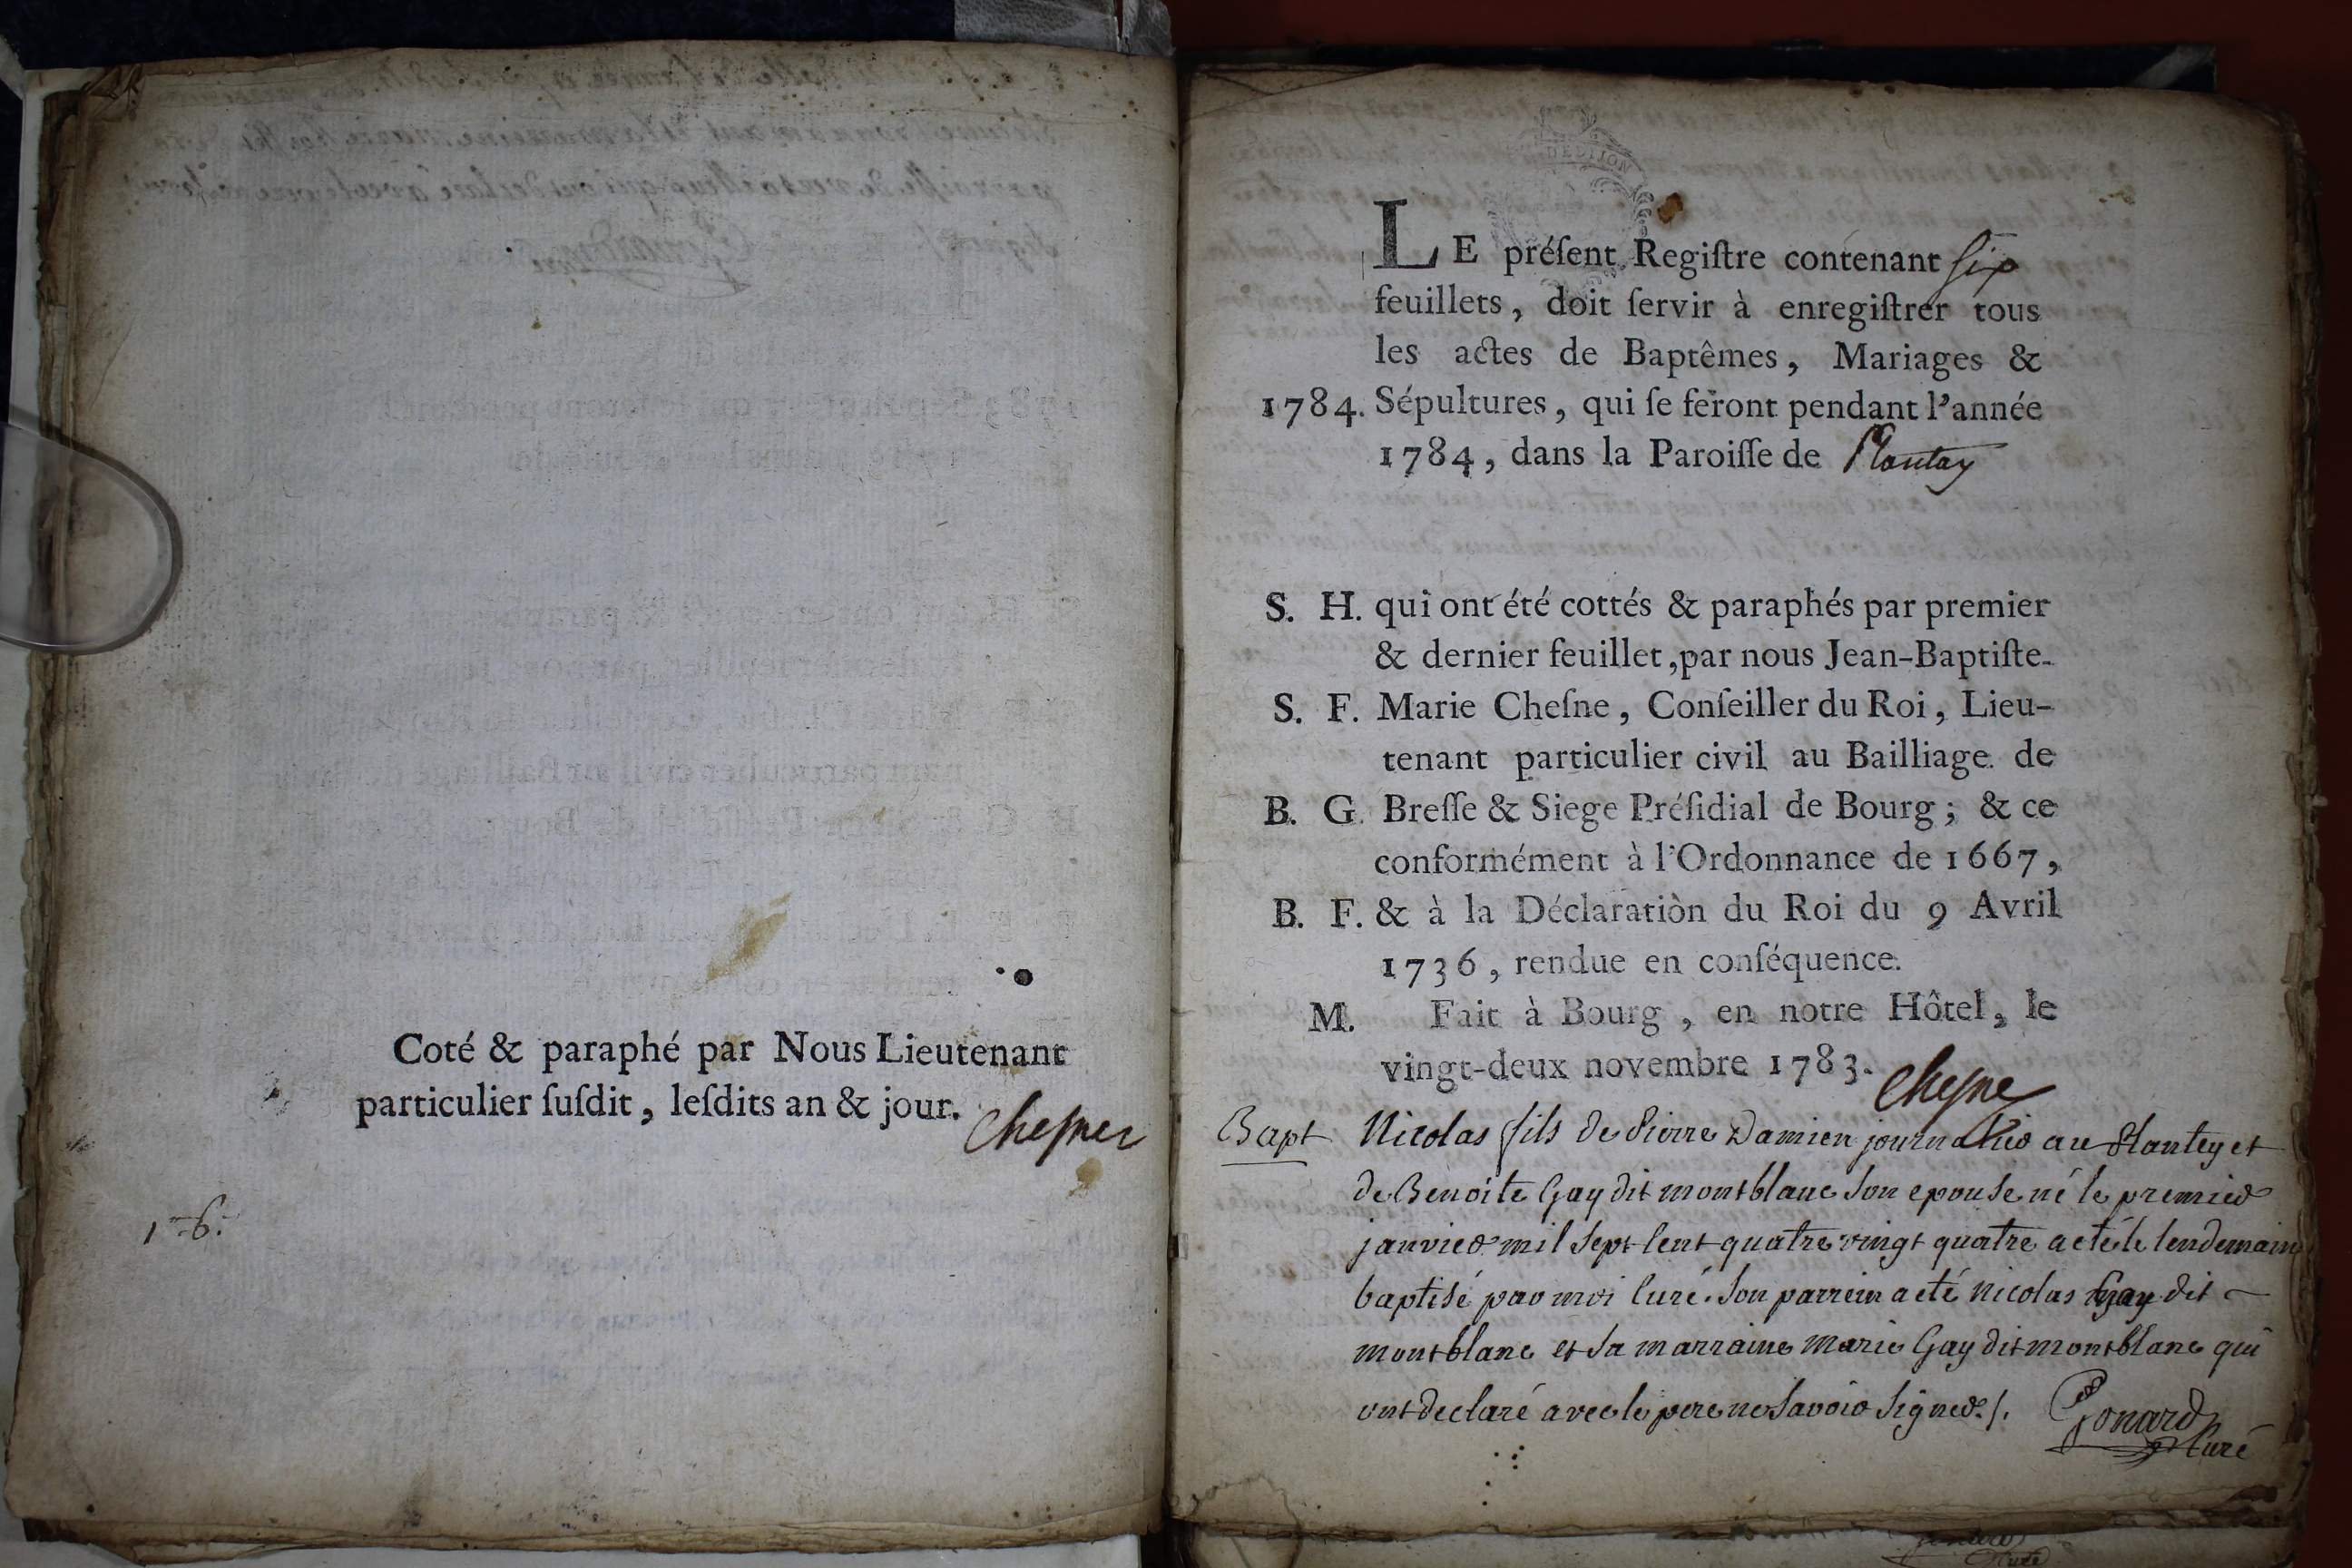 Coté & paraphé par Nous Lieutenant
particulier ſuſdit, leſdits an & jour.
Cheſne
1-6.
LE préſent Regiſtre contenant six
feuillets, doit ſervir à enregiſtrer tous
les actes de Baptêmes, Mariages &
1784. Sépultures, qui ſe feront pendant l'année
1784, dans la Paroiſſe de Plantay
S. H. qui ont été cottés & paraphés par premier
& dernier feuillet, par nous Jean-Baptiſte-
S. F. Marie Cheſne, Conſeiller du Roi, Lieu-
tenant particulier civil au Bailliage de
B. G. Breſſe & Siege Préſidial de Bourg; & ce
conformément à l'Ordonnance de 1667,
B. F. & à la Déclaration du Roi du 9 Avril
1736, rendue en conſéquence.
M. Fait à Bourg, en notre Hôtel, le
vingt-deux novembre 1783.
Cheſne
Bapt Nicolas fils de Pierre Damien journalier au Plantey et
de Benoite Gay dit montblanc son epouse né le premier
janvier mil sept cent quatre vingt quatre a eté le lendemain
baptisé par moi curé. son parrein a eté nicolas Gay dit
montblanc et sa marraine marie Gay dit montblanc qui
ont declaré avec le pere ne savoir signer./.
Gonard
Curé